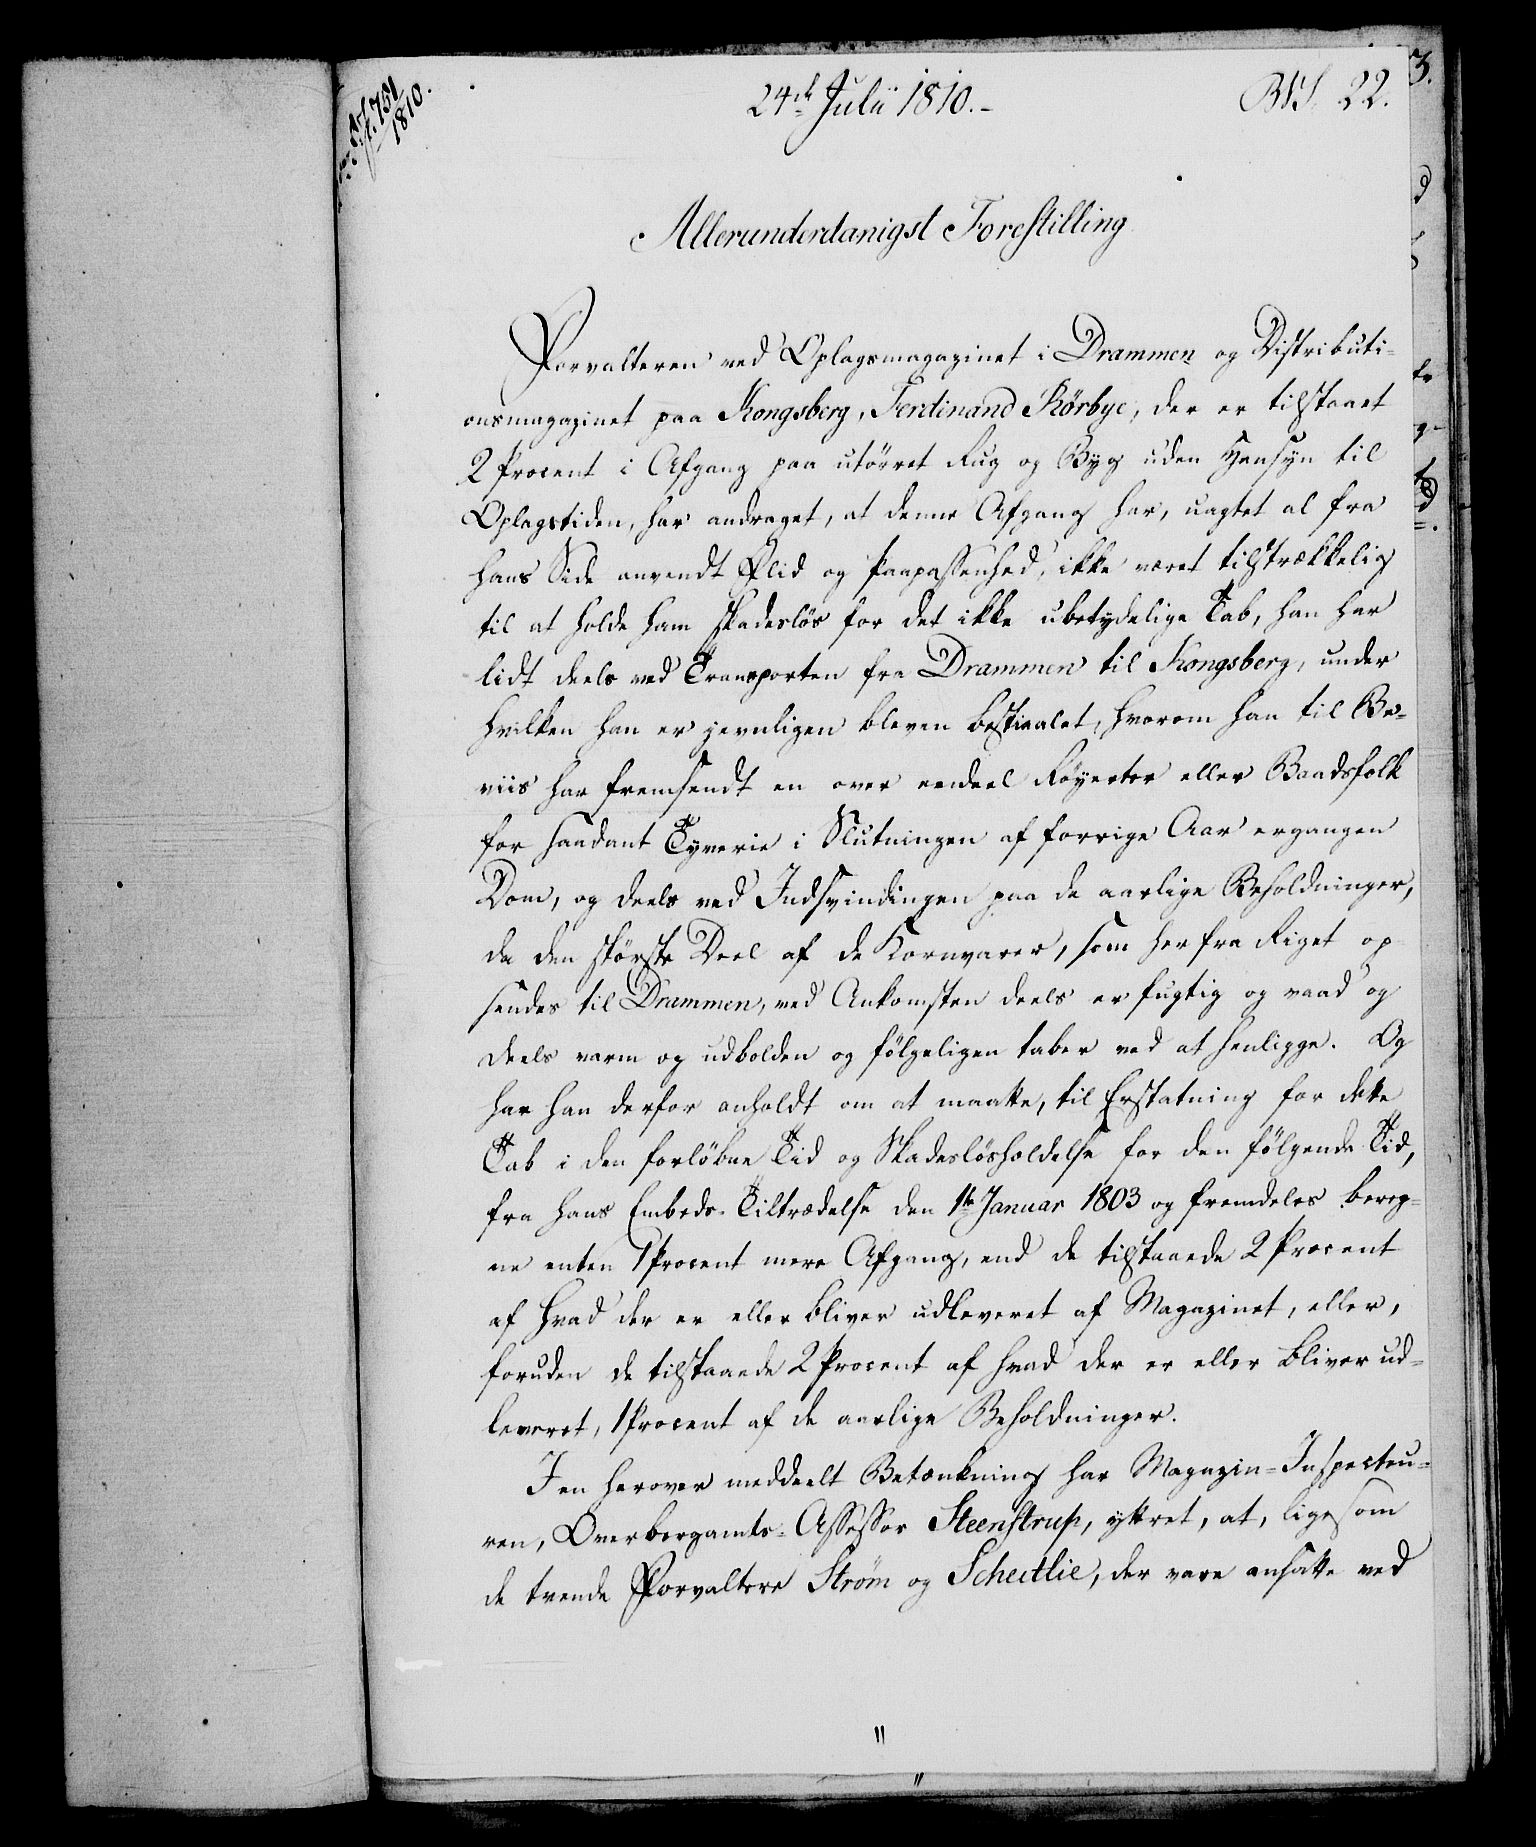 751
1810.
24de Julii 1810.-
22.
Allerunderdanigst Forestilling
Forvalteren ved Oplagsmagazinet i Drammen og Distributi-
onsmagazinet paa Kongsberg, Ferdinand Rørbye, der er tilstaaet
2 Procent i Afgang paa utørret Rug og Byg uden Hensyn til
Oplagstiden, har andraget, at denne Afgang har, uagtet al fra
hans Side anvendt Flid og Paapassenhed, ikke været tilstrækkelig
til at holde ham skadesløs for det ikke ubetydelige Tab, han har
lidt deels ved Transporten fra Drammen til Kongsberg, under
hvilken han er jevnligen bleven bestiaalet, hvorom han til Be-
viis har fremsendt en over eendeel Røyerter eller Baadsfolk
for saadant Tyverie i Slutningen af forrige Aar ergangen
Dom, og deels ved Indsvindingen paa de aarlige Beholdninger,
da den største Deel af de Kornvarer, som herfra Riget op-
sendes til Drammen, ved Ankomsten deels er fugtig og vaad og
deels varm og udbolden og følgeligen taber ved at henligge. Og
har han derfor anholdt om at maatte, til Erstatning for dette
Tab i den forløbne Tid og Skadesløsholdelse for den følgende Tid,
fra hans Embeds-Tiltrædelse den 1te Januar 1803 og fremdeles bereg-
ne enten 1 Procent mere Afgang, end de tilstaaede 2 Procent
af hvad der er eller bliver udleveret af Magazinet, eller,
foruden de tilstaaede 2 Procent af hvad der er eller bliver ud-
leveret, 1 Procent af de aarlige Beholdninger.
I en herover meddeelt Betænkning har Magazin-Inspecteu-
ren, Overbergamts-Assessor Steenstrup, yttret, at, ligesom
de trende Forvaltere Strøm og Scheitlie, der vare ansatte ved